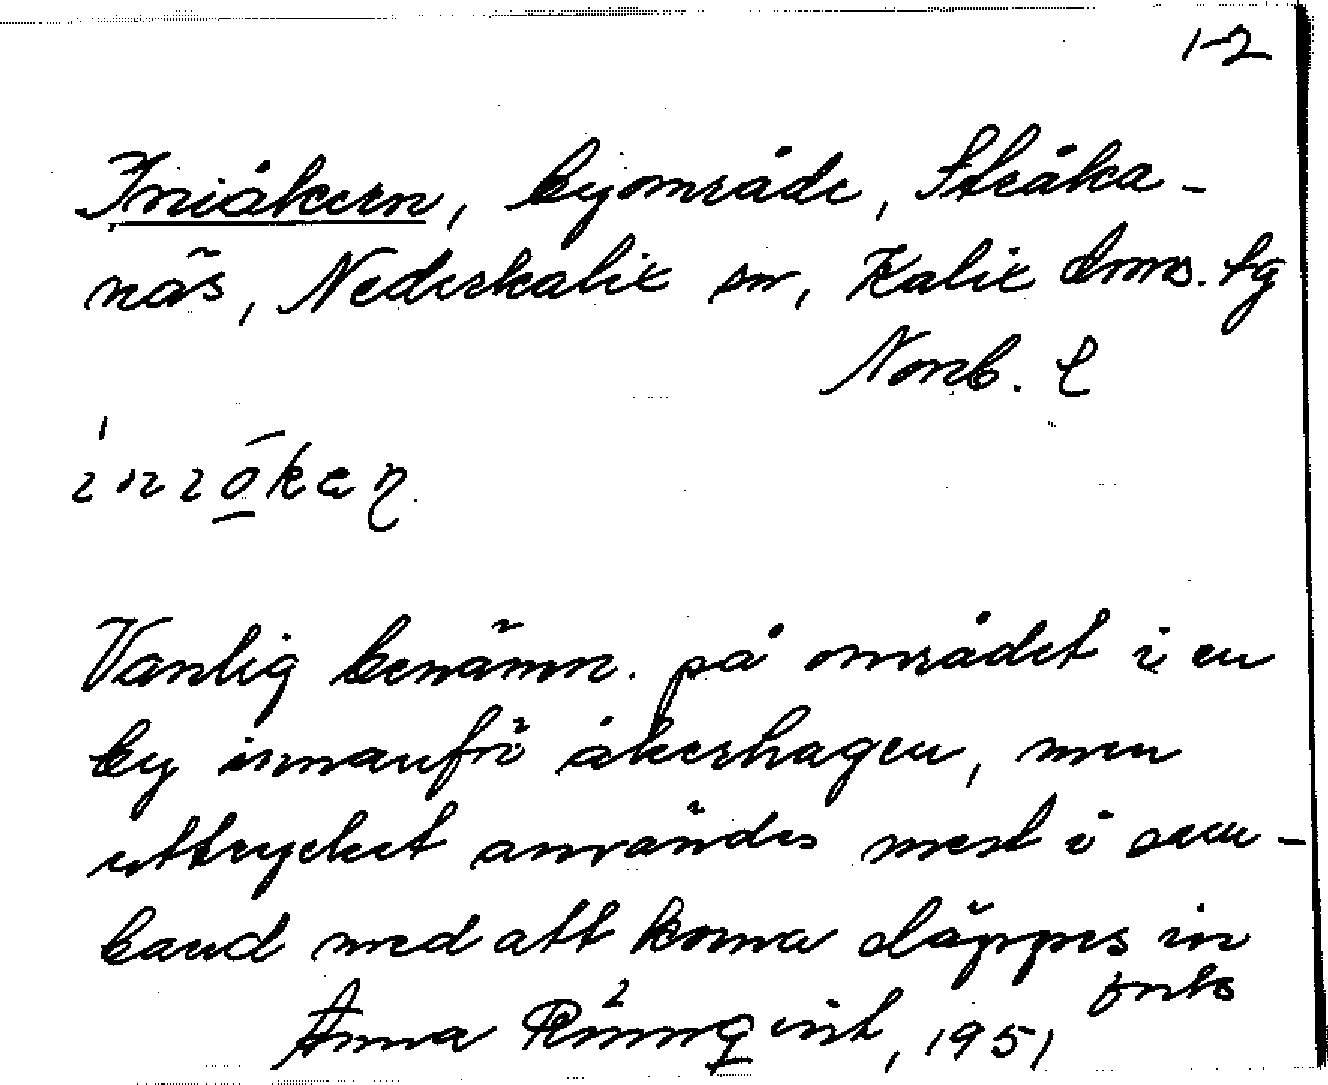 1-2
Iniåkern, byområde, Stråka-
näs, Nederkalix sn, Kalix doms. tg
Norrb. l
iniåkeɳ
Vanlig benämn. på området i en
by innanför åkerhagen, men
uttrycket användes mest i sam-
band med att korna släppes in
forts
Anna Rönnqvist, 1951